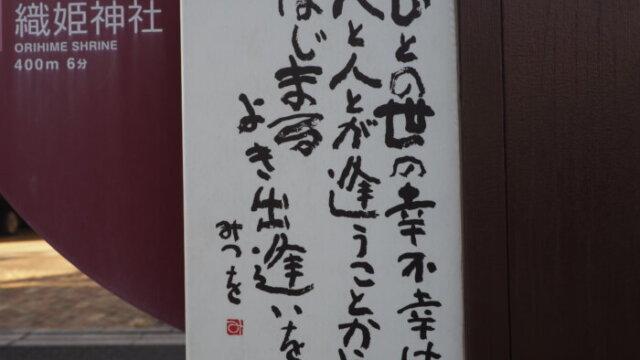 織姫神社
ORIHIME SHRINE
400m 6分
ひとの世の幸不幸は
人と人とが逢うことから
はじまる
よき出逢いを
みつを